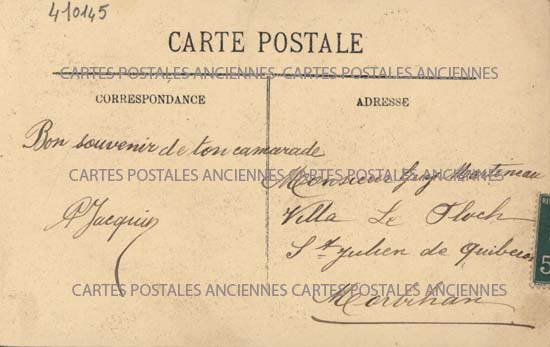 410145
CARTE POSTALE
CARTES POSTALES ANCIENNES CARTES POSTALES ANCIENNES
CORRESPONDANCE
ADRESSE
Bon souvenir de ton camarade
CARTES POSTALES ANCIENNES CARTES POSTALES ANCIENNES
Monsieur Martineau
Jacquin
Villa Le Floch
St Julien de Quiberon
CARTES POSTALES ANCIENNES CARTES POSTALES ANCIENNES
Morbihan
5